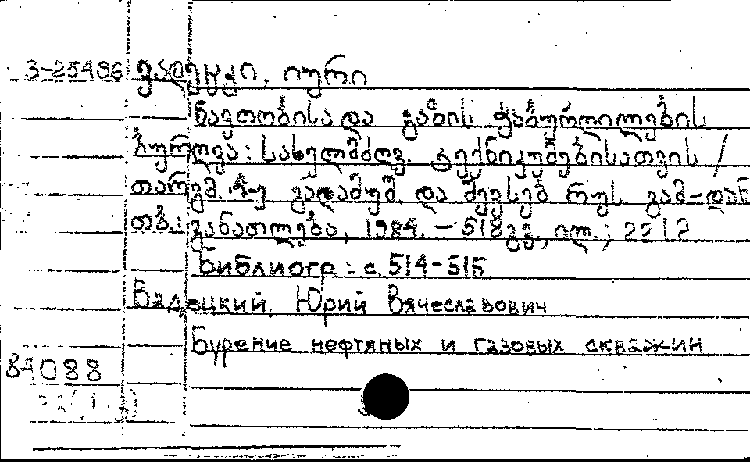 3-25486 ვადეცკი, იური
ნავთობისა და გაზის ჭაბურღილების
ბურღვა: სახელმძღვ. ტექნიკუმებისათვის /
თარგმ. მე- გადამუშ. და შევსებ. რუს. გამ-დან
თბ.: განათლება, 1984. – 518 გვ., ილ.; 22 სმ
Библиогр.: с. 514-515
Вадецкий, Юрий Вячеславович
Бурение нефтяных и газовых скважин
84088